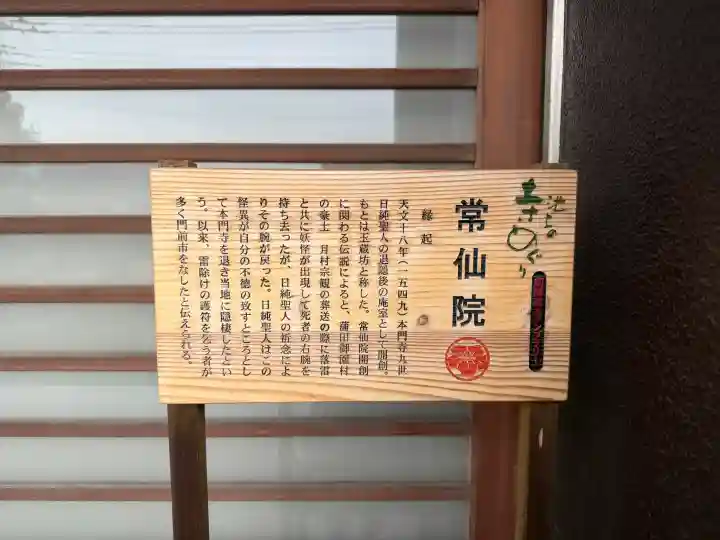 池上の
まちめぐり
常仙院
縁起
天文十八年(一五四九)本門寺九世
日純聖人の退隠後の庵室として開創。
もとは玉蔵坊と称した。常仙院開創
に関わる伝説によると、蒲田御園村
の豪士 月村宗観の葬送の際に落雷
と共に妖怪が出現して死者の右腕を
持ち去ったが、日純聖人の祈念によ
りその腕が戻った。日純聖人はこの
怪異が自分の不徳の致すところとし
て本門寺を退き当地に隠棲したとい
う。以来、雷除けの護符を乞う者が
多く門前市をなしたと伝えられる。